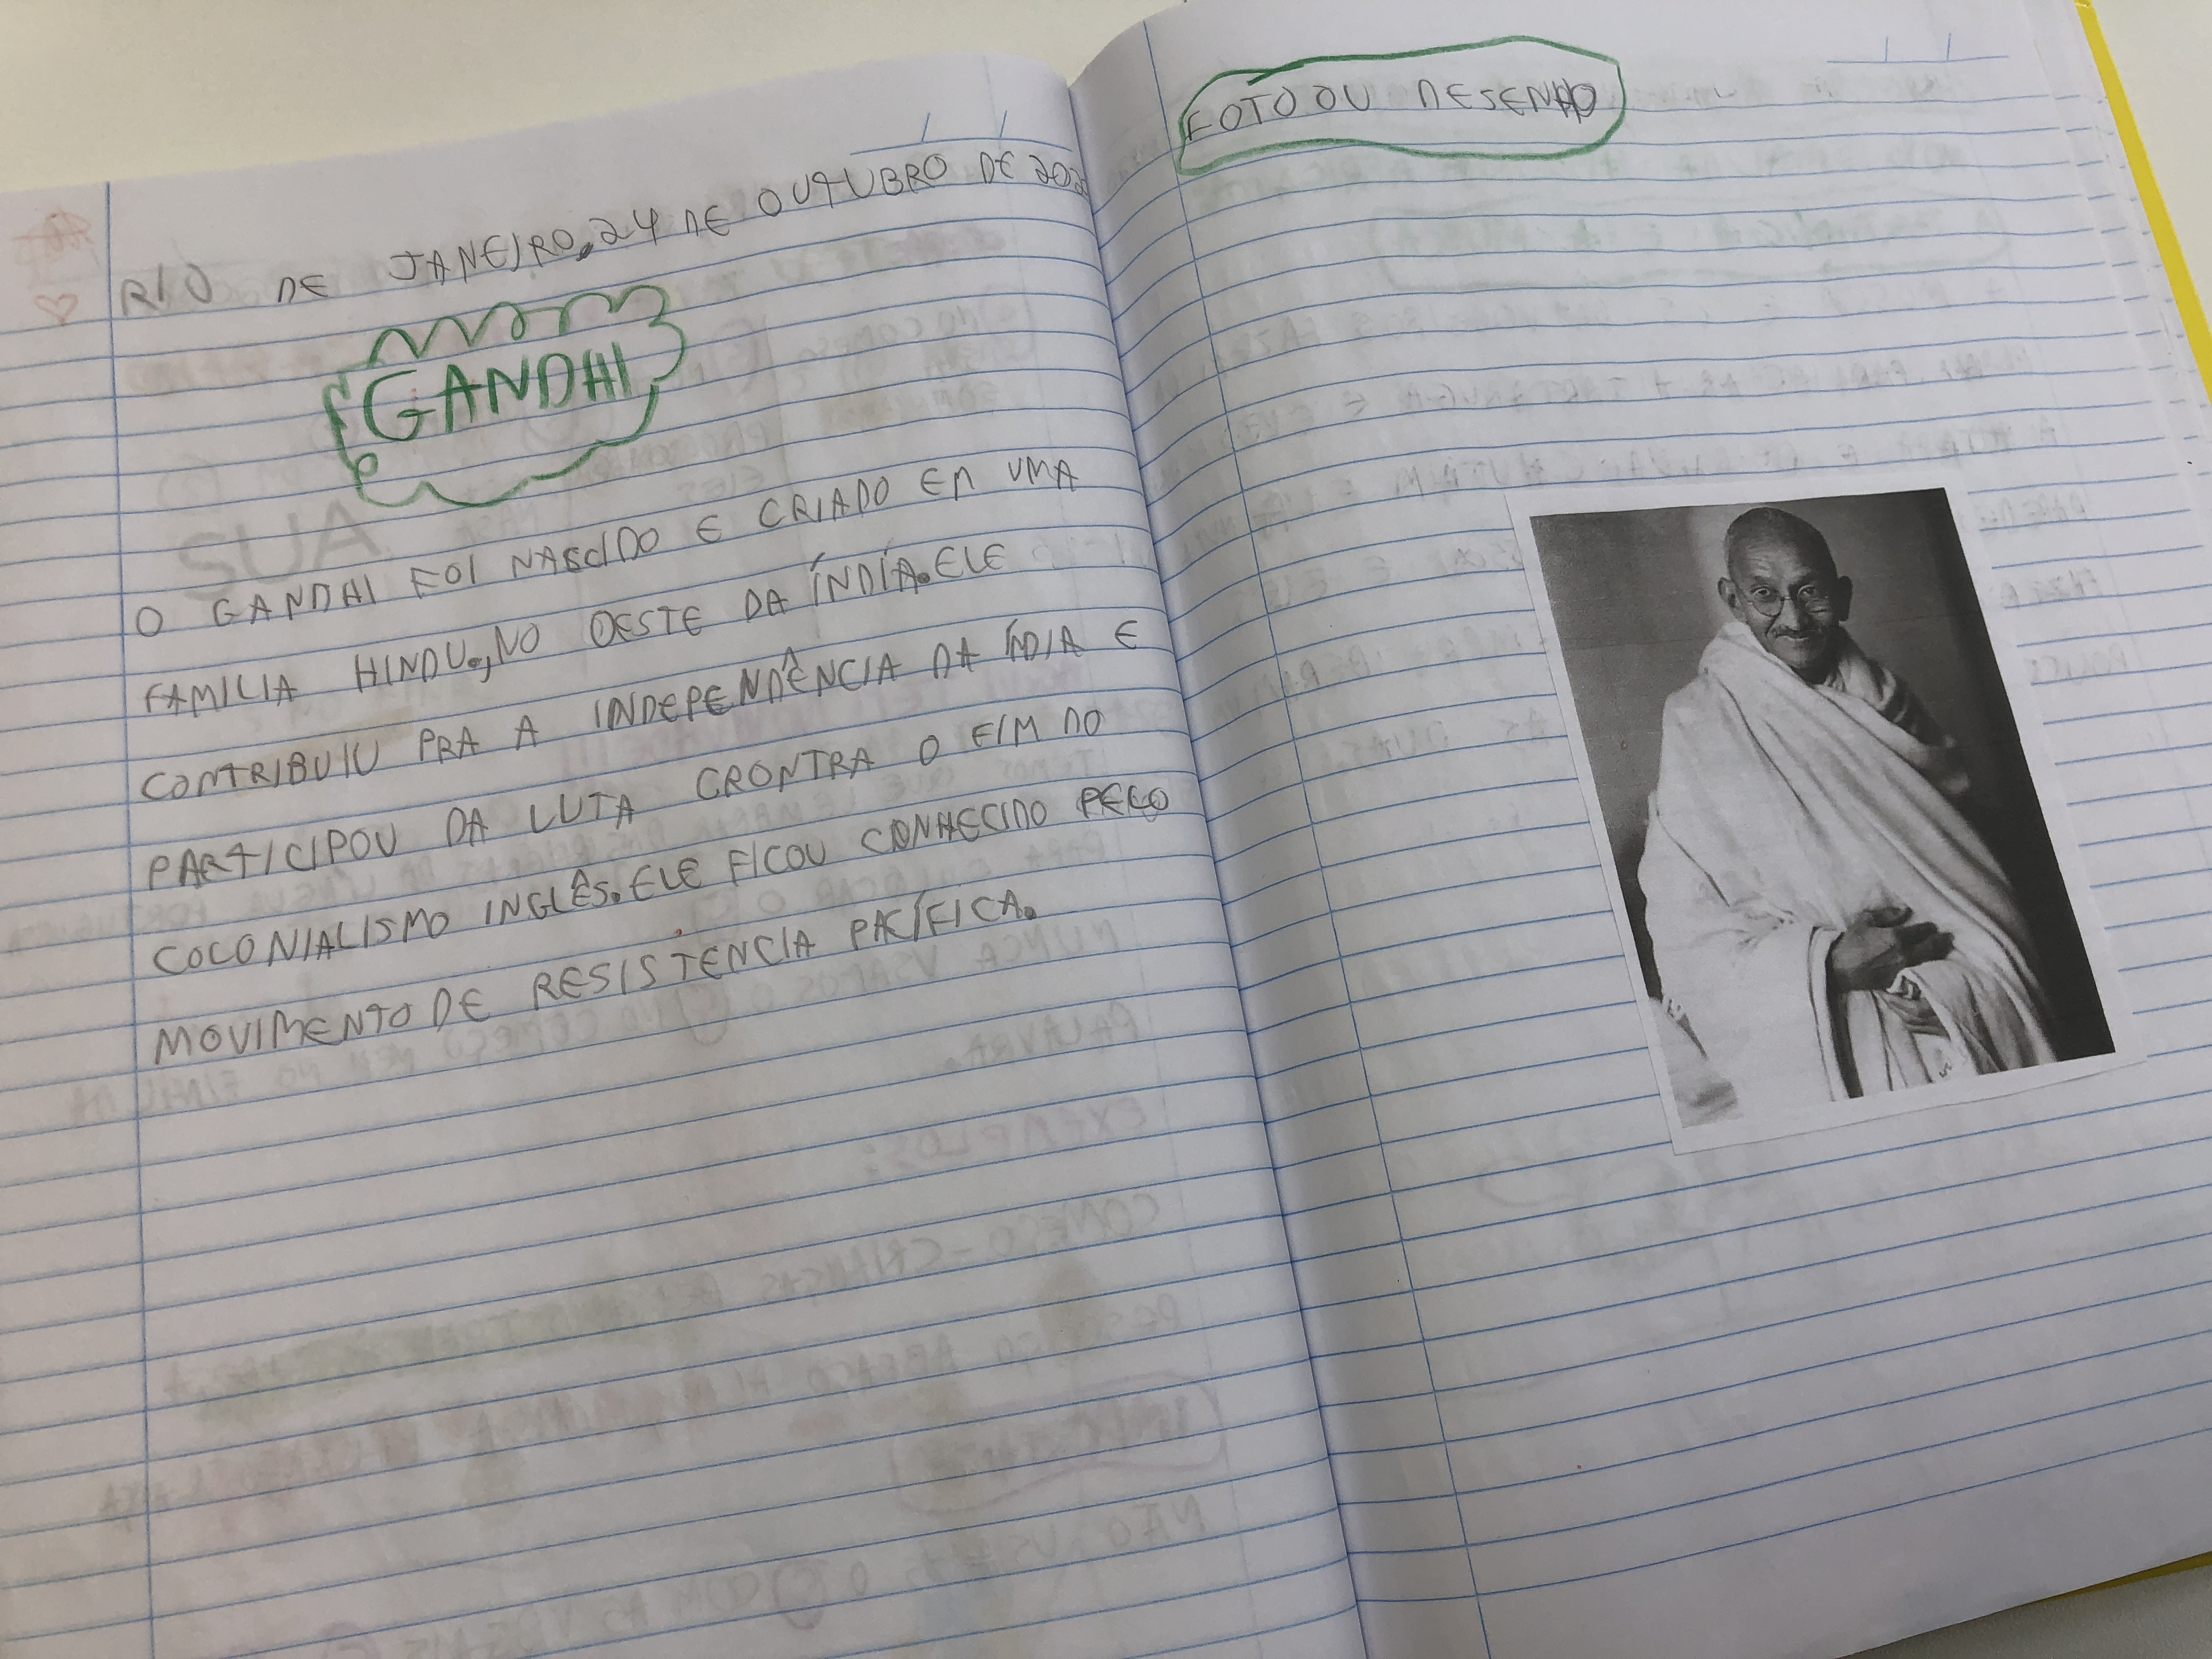 RIO DE JANEIRO, 24 DE OUTUBRO DE 202
GANDHI
O GANDHI FOI NASCIDO E CRIADO EM UMA
FAMILIA HINDU, NO OESTE DA ÍNDÍA. ELE
CONTRIBUIU PRA A INDEPENDÊNCIA DA ÍNDIA E
PARTICIPOU DA LUTA CRONTRA O FIM DO
COLONIALISMO INGLÊS. ELE FICOU CONHECIDO PELO
MOVIMENTO DE RESISTENCIA PACÍFICA.
FOTO OU DESENHO